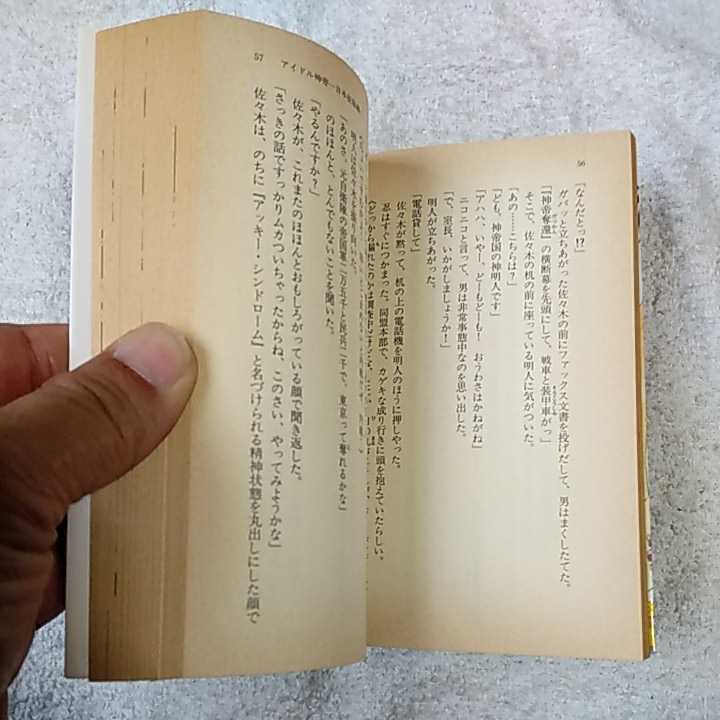 56
「なんだとっ!?」
ガバッと立ちあがった佐々木の前にファックス文書を投げだして、男はまくしたてた。
「『神帝奪還』の横断幕を先頭にして、戦車と装甲車がっ」
そこで、佐々木の机の前に座っている明人に気がついた。
「あの……こちらは?」
「ども、神帝国の神明人です」
「アハハ、いやー、どーもどーも! おうわさはかねがね」
ニコニコと言って、男は非常事態中なのを思い出した。
「で、室長、いかがしましょうか!」
明人が立ちあがった。
「電話貸して」
佐々木が黙って、机の上の電話機を明人のほうに押しやった。
忍はすぐにつかまった。同盟本部で、カゲキな成り行きに頭を抱えていたらしい。
57 アイドル神帝
明人は佐々木を振り向いた。
「あのさ、元自衛隊の帝国軍二万五千と民兵二千で、東京って奪れるかな」
のほほんと、とんでもないことを聞いた。
「やるんですか?」
佐々木が、これまたのほほんとおもしろがっている顔で聞き返した。
「さっきの話ですっかりムカついちゃったからね、このさい、やってみようかな」
佐々木は、のちに『アッキー・シンドローム』と名づけられる精神状態を丸出しにした顔で